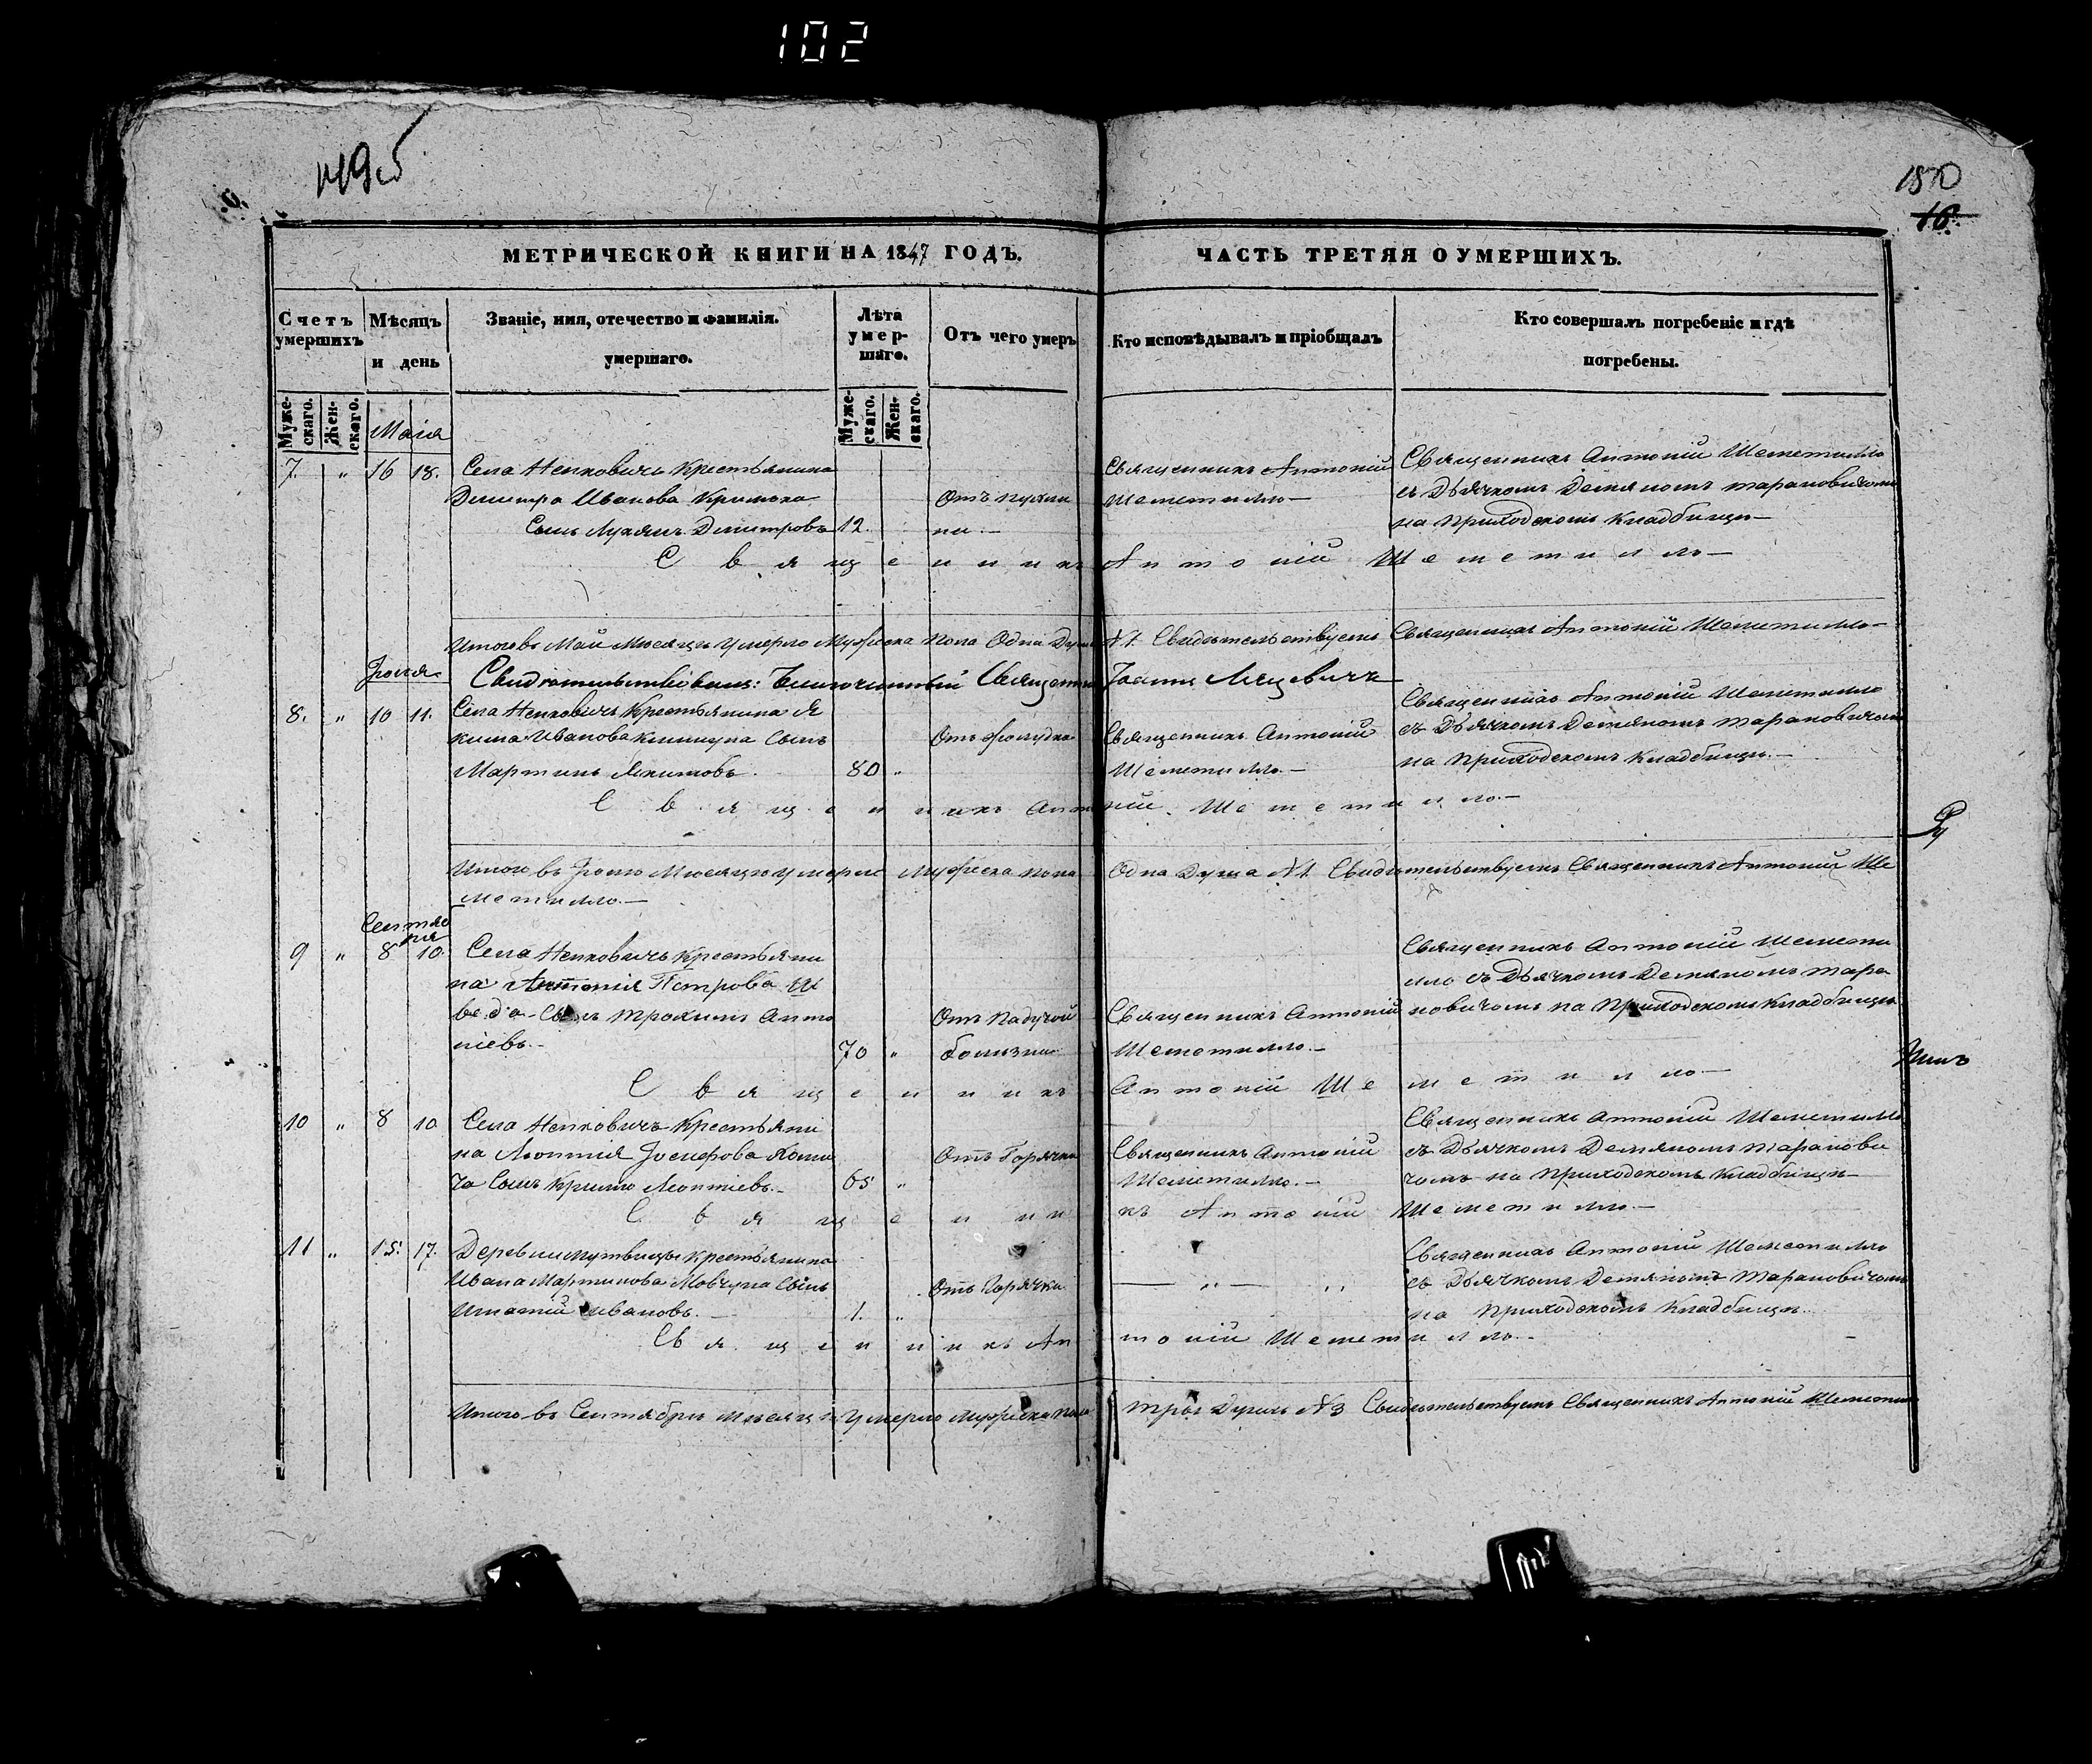 102
1495
150
16.
МЕТРИЧЕСКОЙ КНИГИ НА 1847 ГОДЪ.
ЧАСТЬ ТРЕТЯЯ О УМЕРШИХЪ.
Счетъ умершихъ
Мѣсяцъ и день
Званіе, имя, отечество и фамилія.
умершаго.
Лѣта умер-шаго.
Отъ чего умеръ
Кто исповѣдывалъ и пріобщалъ
Кто совершалъ погребеніе и гдѣ
погребены.
Муже-скаго.
Жен-скаго.
Муже-скаго.
Жен-скаго.
Маія
7. " 16 18. Села Непковичъ Крестьянина
Димитра Иванова
Сынъ Лукянъ Димитровъ 12.
Священникъ Антоній
Шеметилло—
Священникъ Антоній Шеметилло
съ Дьячкомъ Демяномъ Тарановичомъ
на Приходскомъ Кладбищѣ—
Священникъ Антоній Шеметилло—
Итого въ Маи Мѣсяцѣ Умерло Мужеска Пола Одна Душа №1. Свидѣтельствуемъ Священникъ Антоній Шеметилло—
Іюня
Свидѣтельствовалъ: Благочинный Священникъ Іоаннъ
8. " 10 11. Села Непковичъ Крестьянина Я
кима Иванова Сынъ
Мартинъ Якимовъ. 80 "
Священникъ Антоній
Шеметилло.—
Священникъ Антоній Шеметилло
съ Дьячкомъ Демяномъ Тарановичомъ
на Приходскомъ Кладбищѣ.—
Священникъ Антоній Шеметилло.—
Итого въ Іюнѣ Мѣсяцѣ Умерло Мужеска пола Одна Душа №1. Свидѣтельствуемъ Священникъ Антоній Ше
метилло.—
Сентяб
ря
9 " 8 10. Села Непковичъ Крестьяни
на Антонія Петрова Ш
веда Сынъ Трохимъ Анто
ніевъ.— 70 "
Отъ Падучей
болѣзни
Священникъ Антоній
Шеметилло.—
Священникъ Антоній Шемети
лло съ Дьячкомъ Демяномъ Тара
новичомъ на Приходскомъ Кладбищѣ
Священникъ Антоній Шеметилло—
10 " 8 10 Села Непковичъ Крестьяни
на Леонтія Іосифова
ча Сынъ Леонтіевъ.— 65 "
Отъ Горячки
Священникъ Антоній
Шеметилло.—
Священникъ Антоній Шеметилло
съ Дьячкомъ Демяномъ Таранови
чомъ на Приходскомъ Кладбищѣ—
Священникъ Антоній Шеметилло.—
11 " 15. 17. Деревни Крестьянина
Ивана Мартинова Мовчуна Сынъ
Игнатій Ивановъ.— 1. "
Отъ Горячки
— " — "
Священникъ Антоній Шеметилло
съ Дьячкомъ Демяномъ Тарановичомъ
на Приходскомъ Кладбищѣ.
Священникъ Антоній Шеметилло.—
Итого въ Сентябрѣ Мѣсяцѣ Умерло Мужеска Пола Тры Душы №3 Свидѣтельствуемъ Священникъ Антоній Шеметил